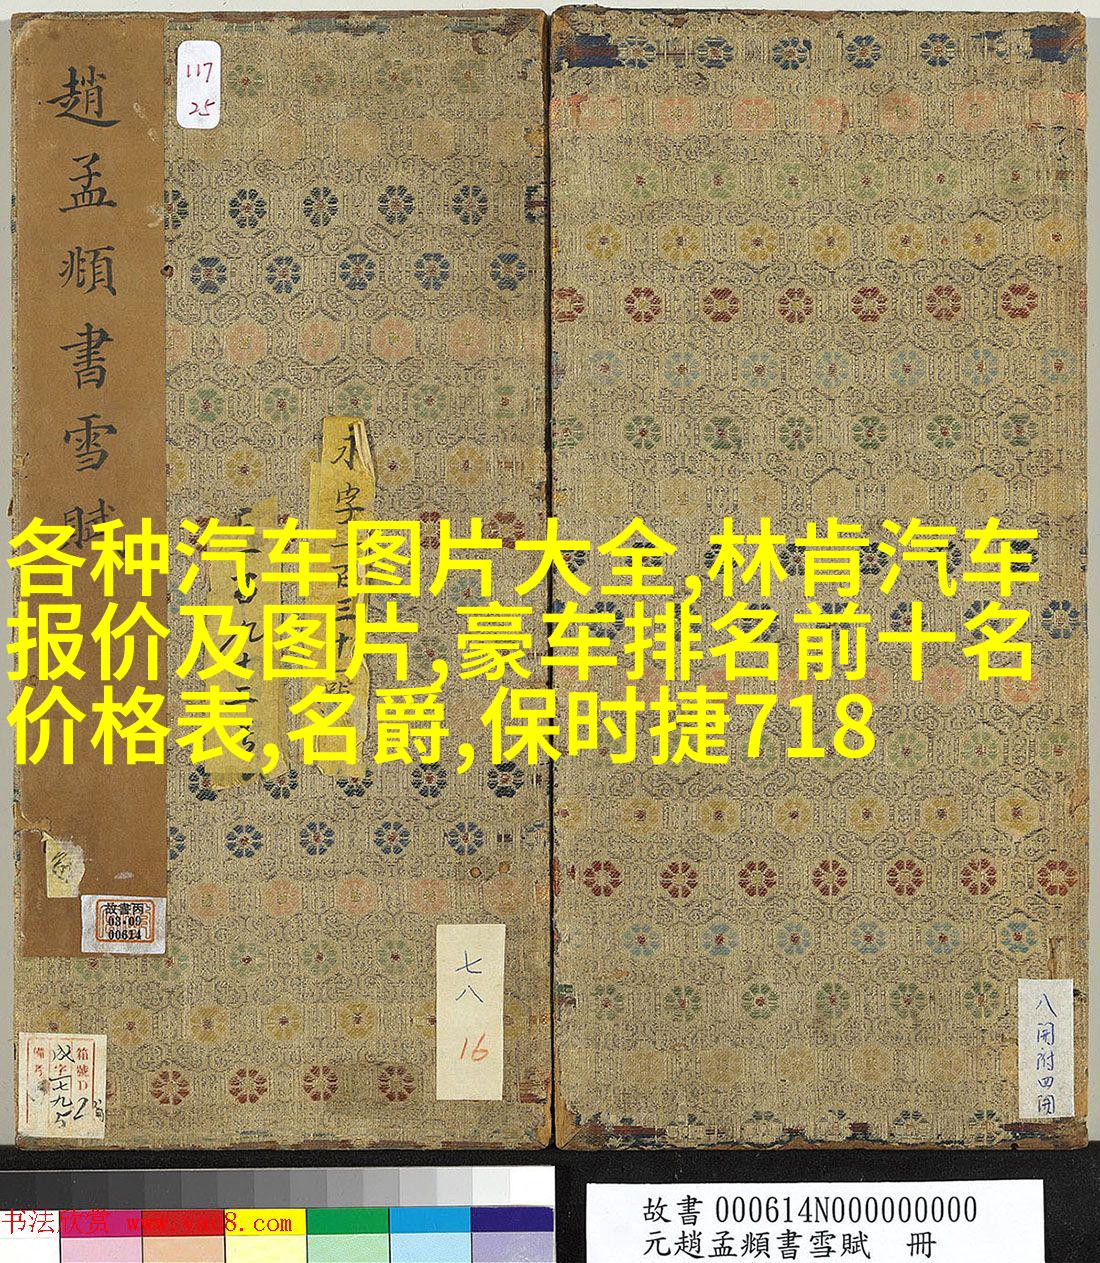 趙孟頫書雪賦
117
25
永字一百三十
各种汽车图片大全,林肯汽车
报价及图片,豪车排名前十名
价格表,名爵,保时捷718
故書丙
03-09
00614
七八
16
箱號D
備考
八開附四開
书法欣赏 www.yac8.com
故書 000614N000000000
元趙孟頫書雪賦 冊